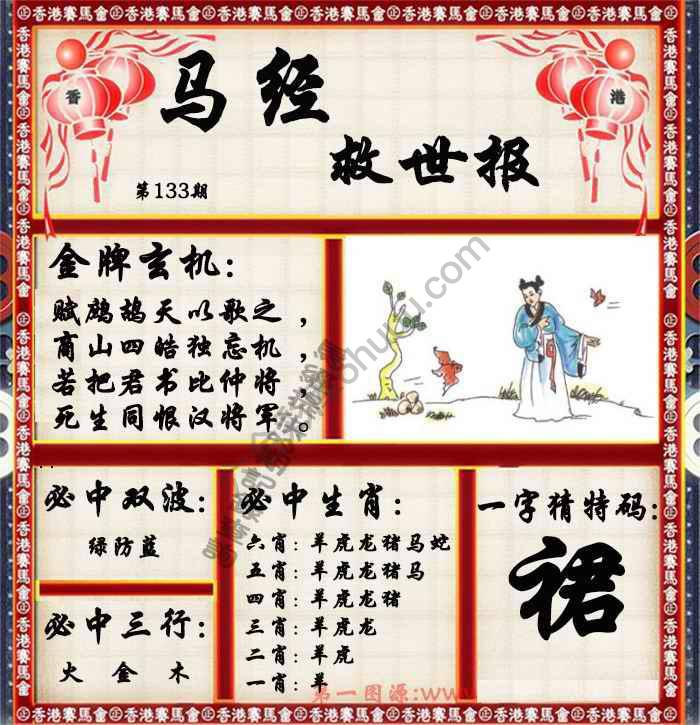 香港賽馬會
香 港
马经
救世报
第133期
金牌玄机:
赋鹧鸪天以歌之，
商山四皓独忘机，
若把君书比仲将，
死生同恨汉将军。
必中双波:
绿防蓝
必中三行:
火 金 木
必中生肖:
六肖: 羊虎龙猪马蛇
五肖: 羊虎龙猪马
四肖: 羊虎龙猪
三肖: 羊虎龙
二肖: 羊虎
一肖: 羊
一字猜特码:
裙
第一图源:www